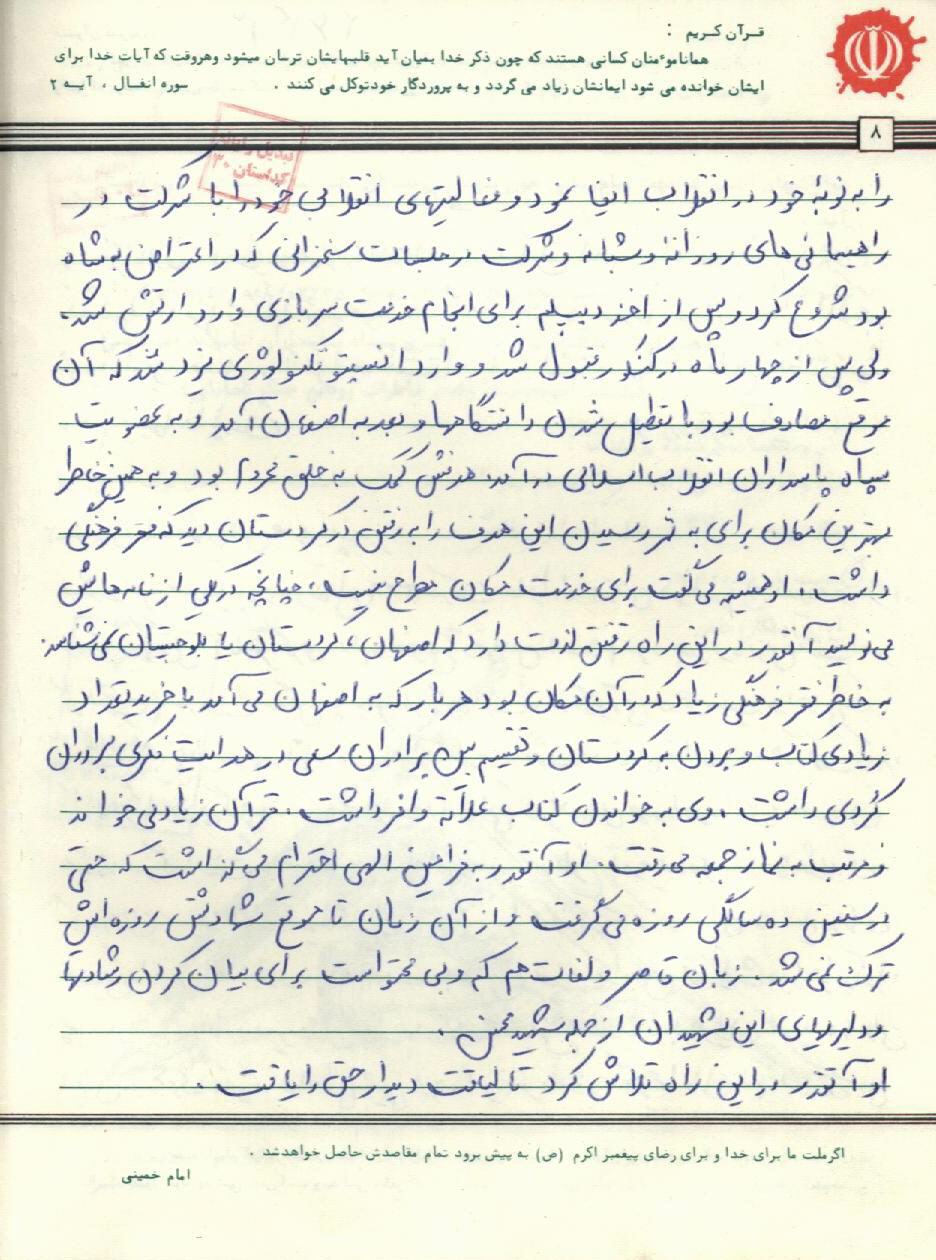 قـرآن کـریم :
همانامؤمنان کسانی هستند که چون ذکر خدا بمیان آید قلبهایشان ترسان میشود وهروقت که آیات خدا برای
ایشان خوانده می شود ایمانشان زیاد می گردد و به پروردگار خودتوکل می کنند . سوره انفـال ، آیـه ۲
۸
را به نوبهٔ خود در انقلاب ایفا نمود و فعالیتهای انقلابی خود را با شرکت در
راهپیمائی‌های روزانه و شبانه و شرکت در جلسات سخنرانی که در اعتراض به شاه
بود شروع کرد و پس از اخذ دیپلم برای انجام خدمت سربازی وارد ارتش شد.
ولی پس از چهار ماه در کنکور قبول شد و وارد انستیتو تکنولوژی یزد شد که آن
موقع مصادف بود با تعطیل شدن دانشگاهها و بعد به اصفهان آمد و به عضویت
سپاه پاسداران انقلاب اسلامی درآمد. هدفش کمک به خلق محروم بود و به همین خاطر
بهترین مکان برای به ثمر رسیدن این هدف را به رفتن در کردستان دید که فقر فرهنگی
داشت. او همیشه می‌گفت برای خدمت مکان مطرح نیست، چنانچه در یکی از نامه‌هایش
می‌نویسد آنقدر در این راه رفتن لذت دارد که اصفهان، کردستان یا بلوچستان نمی‌شناسد.
به خاطر فقر فرهنگی زیاد که در آن مکان بود هر بار که به اصفهان می‌آمد با خرید تعداد
زیادی کتاب و بردن به کردستان و تقسیم بین برادران سعی در هدایت فکری برادران
کُردی داشت. وی به خواندن کتاب علاقهٔ وافر داشت. قرآن زیاد می‌خواند
و مرتب به نماز جمعه می‌رفت. او آنقدر به فرامین الهی احترام می‌گذاشت که حتی
در سنین ده سالگی روزه می‌گرفت و از آن زمان تا موقع شهادتش روزه‌اش
ترک نمی‌شد. زبان قاصر و لغات هم کم و بی محتواست برای بیان کردن رشادتها
و دلیریهای این شهیدان از جمله شهید محسن.
او آنقدر در این راه تلاش کرد تا لیاقت دیدار حق را یافت.
اگرملت ما برای خدا و برای رضای پیغمبر اکرم (ص) به پیش برود تمام مقاصدش حاصل خواهدشد .
امام خمینی